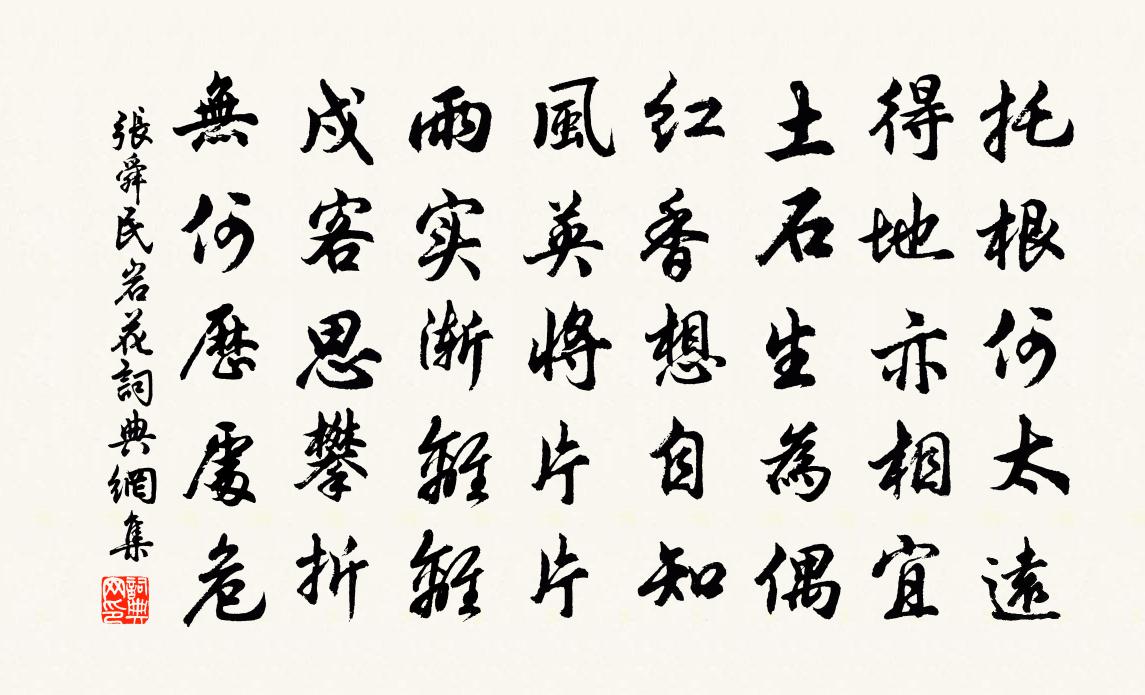 托根何太遠
得地亦相宜
土石生為偶
红香想自知
風英將片片
雨实漸離離
戍客思攀折
無何歷處危
張舜民岩花詞典網集
詞典网印